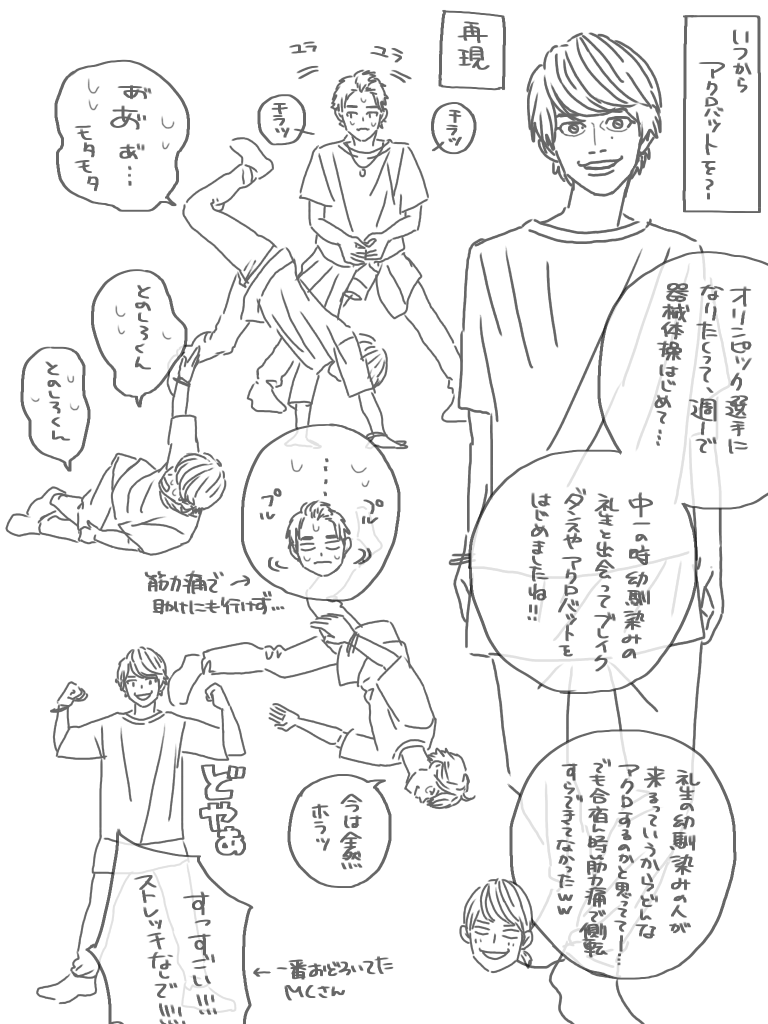 いつから
アクロバットを?
オリンピック選手に
なりたくって、週一で
器械体操はじめて…
中一の時幼馴染みの
礼生と出会ってブレイク
ダンスやアクロバットを
はじめましたね!!
礼生の幼馴染みの人が
来るっていうからどんな
アクロするのかと思ってて…
でも合宿ん時筋肉痛で側転
すらできてなかったww
再現
ユラ
ユラ
チラッ
チラッ
あ゛
あ゛あ゛…
モタモタ
とのしろくん
とのしろくん
…
プル
プル
筋肉痛で
助けにも行けず…
今は全然
ホラッ
どやぁ
すっすごい!!!
ストレッチなしで!!!!
←一番おどろいてた
MCさん